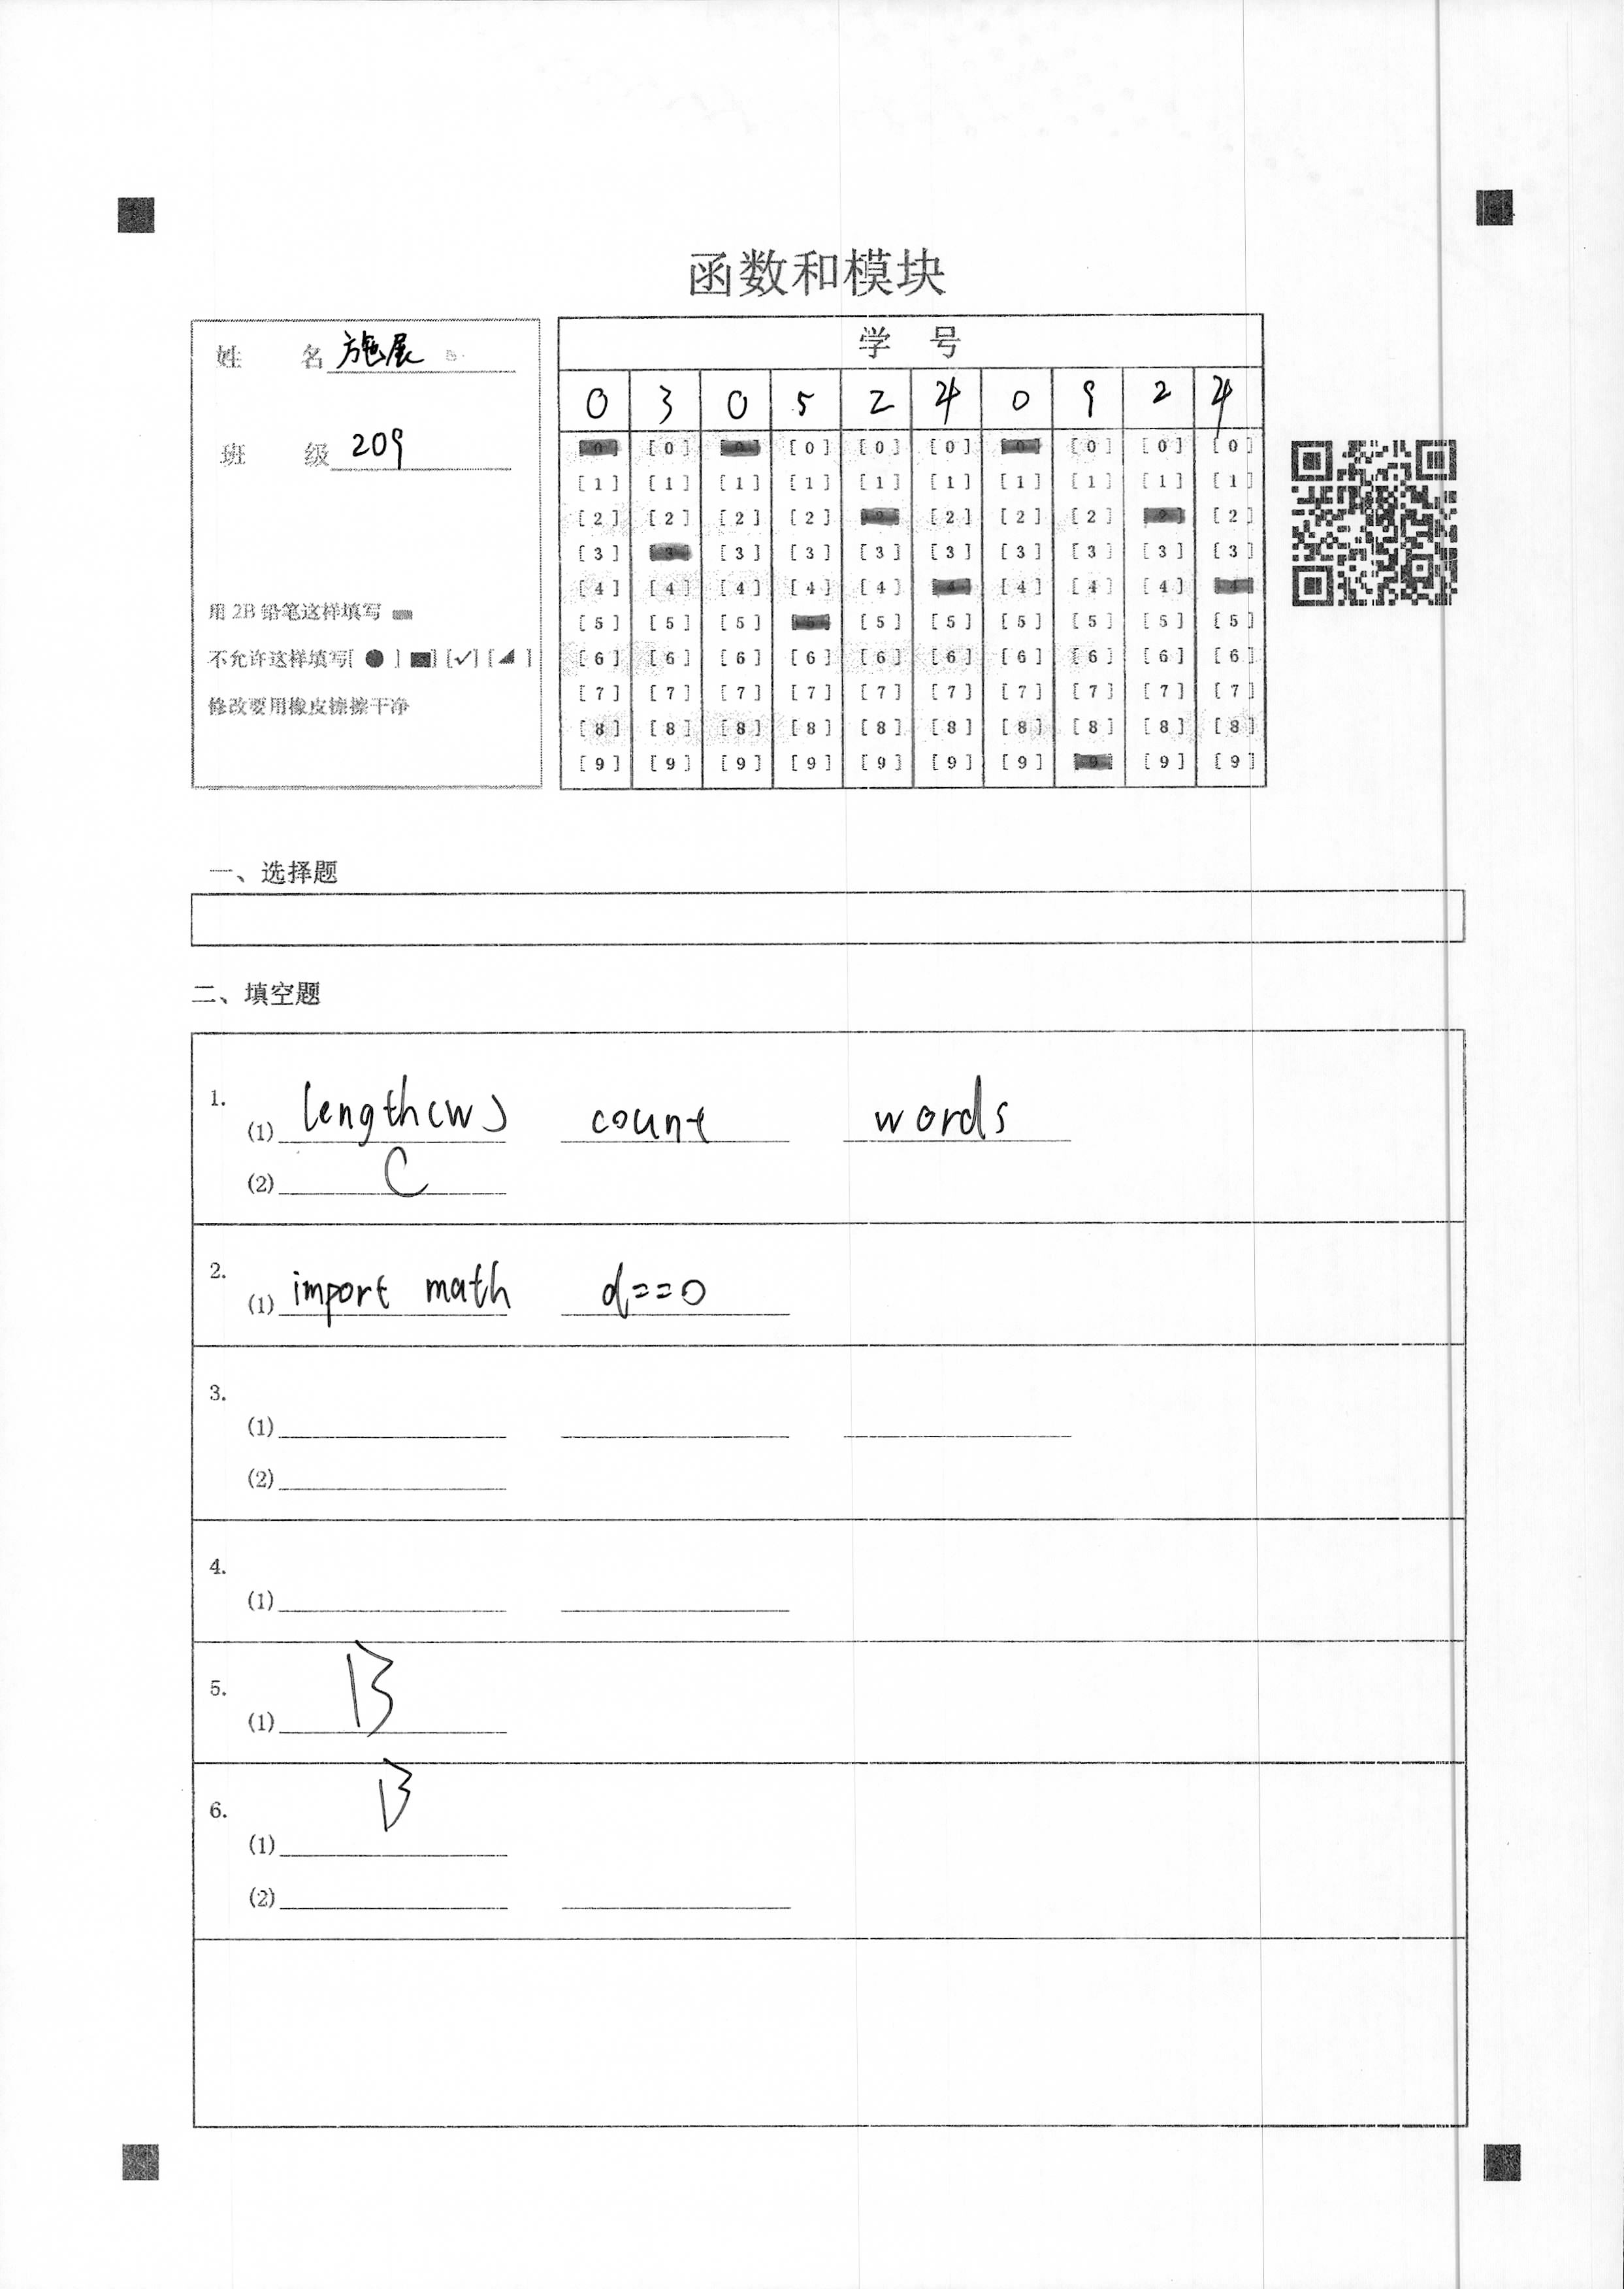 函数和模块
姓 名 施展
班 级 209
用 2B 铅笔这样填写
不允许这样填写[ ● ] [■] [✓] [◢ ]
修改要用橡皮擦擦干净
学 号
0 3 0 5 2 4 0 9 2 4
[0] [0] [0] [0] [0] [0] [0] [0] [0] [0]
[1] [1] [1] [1] [1] [1] [1] [1] [1] [1]
[2] [2] [2] [2] [2] [2] [2] [2] [2] [2]
[3] [3] [3] [3] [3] [3] [3] [3] [3] [3]
[4] [4] [4] [4] [4] [4] [4] [4] [4] [4]
[5] [5] [5] [5] [5] [5] [5] [5] [5] [5]
[6] [6] [6] [6] [6] [6] [6] [6] [6] [6]
[7] [7] [7] [7] [7] [7] [7] [7] [7] [7]
[8] [8] [8] [8] [8] [8] [8] [8] [8] [8]
[9] [9] [9] [9] [9] [9] [9] [9] [9] [9]
一、选择题
二、填空题
1.
(1) length(w) count words
(2) C
2.
(1) import math d==0
3.
(1)
(2)
4.
(1)
5.
(1) B
6.
(1) B
(2)